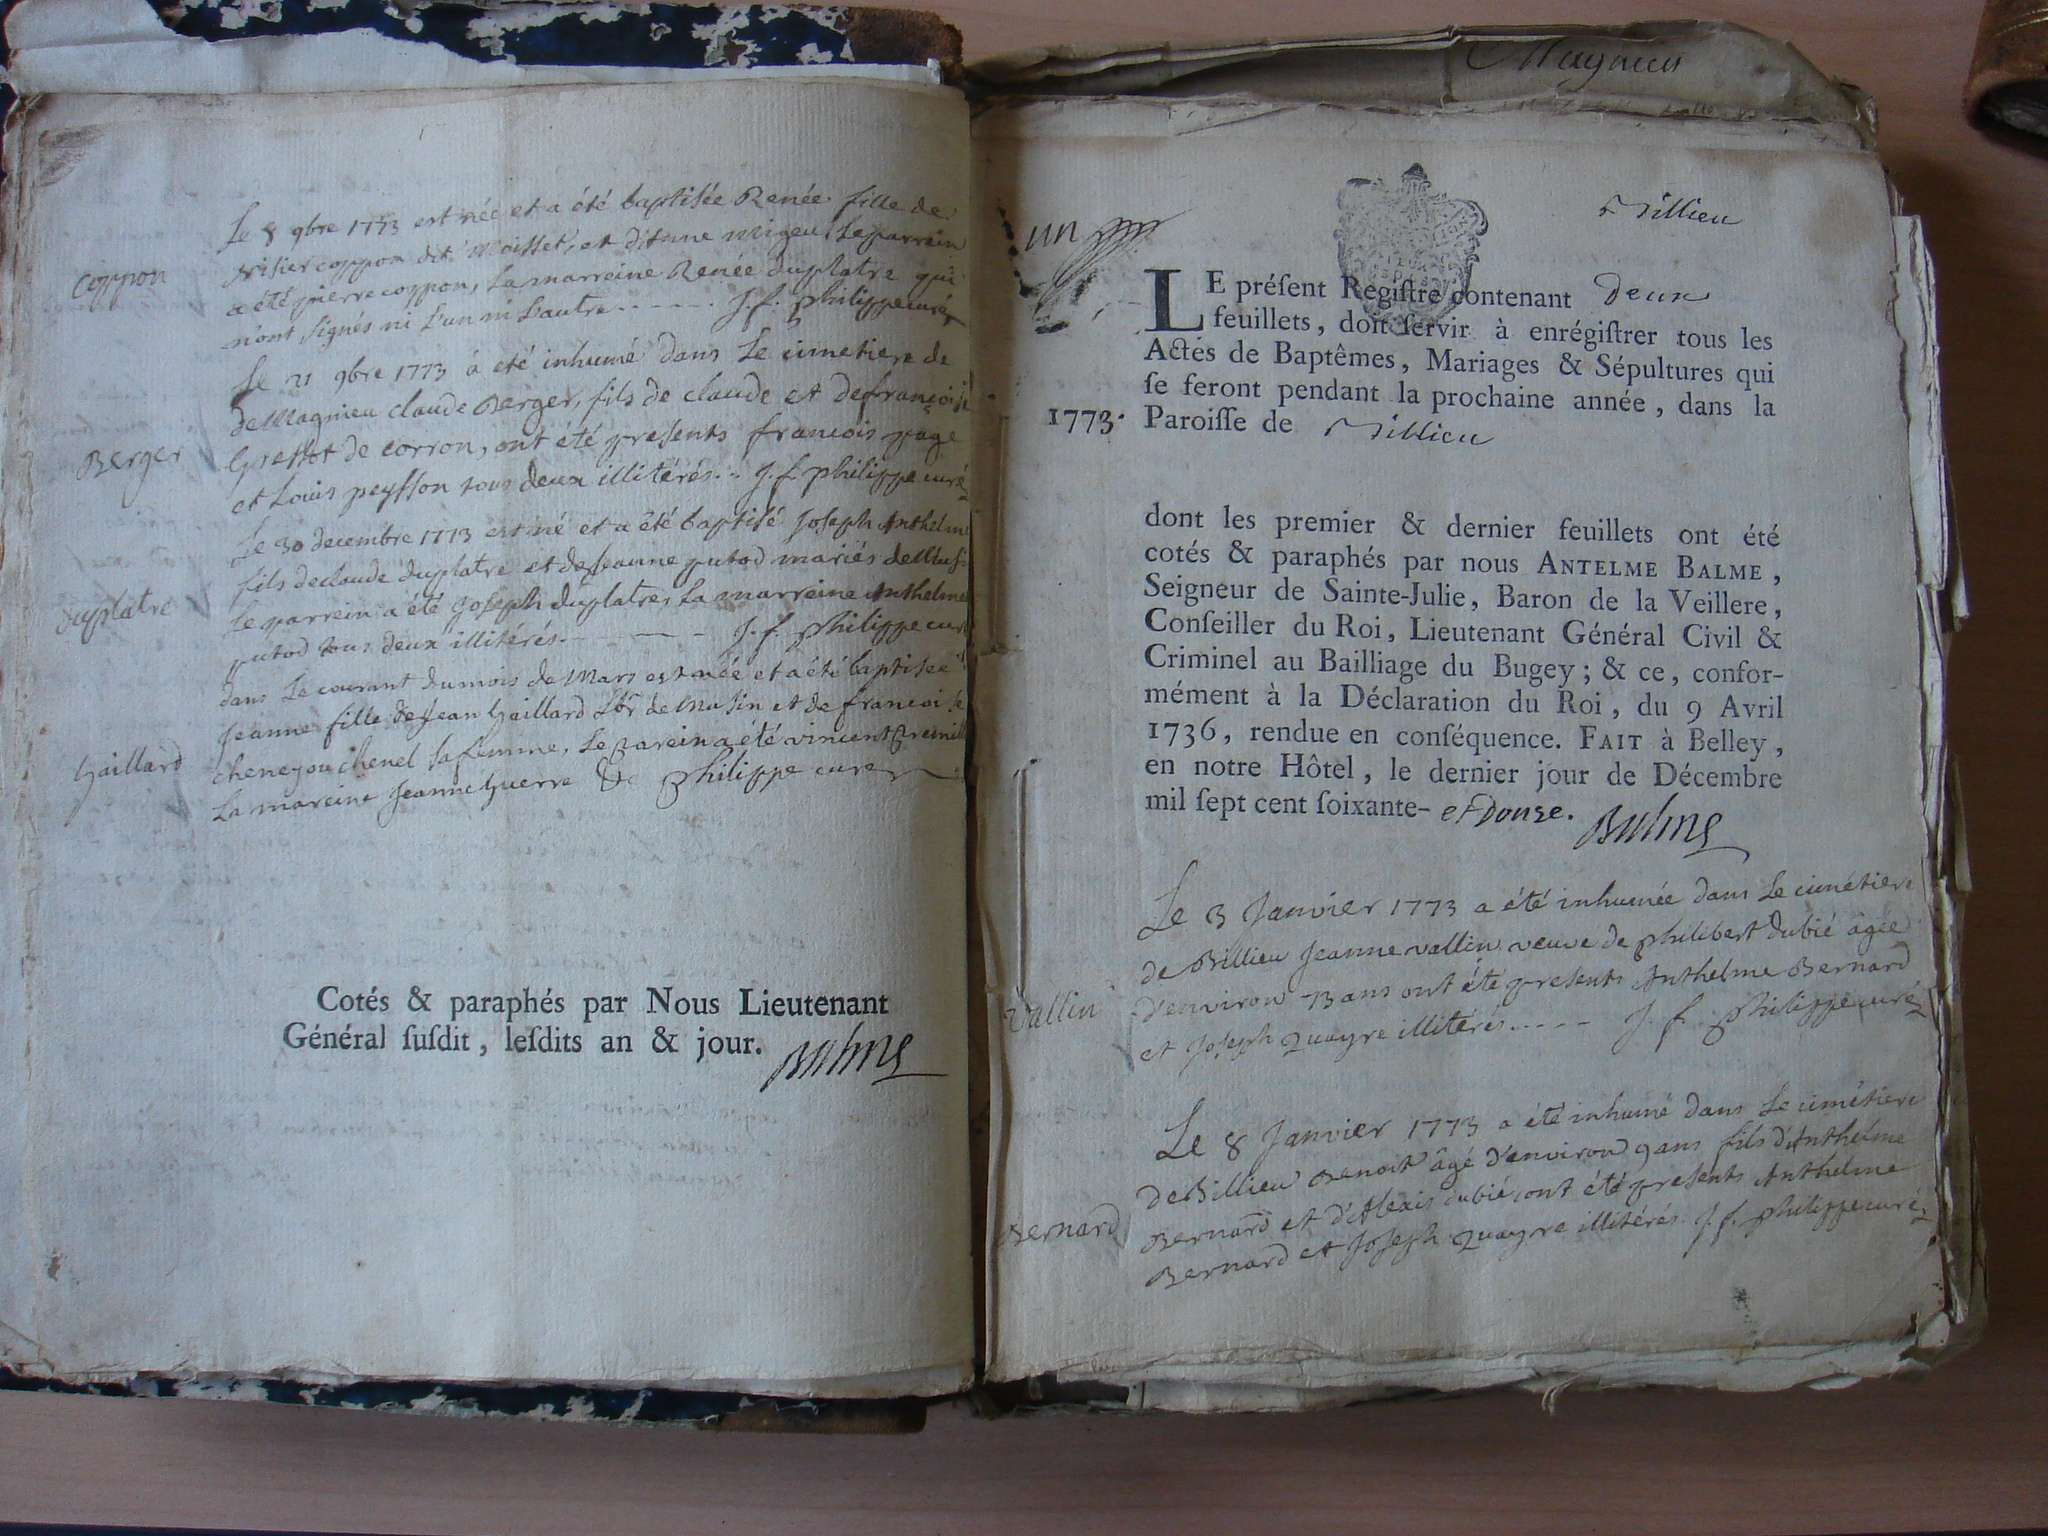 Coppon
Le 8 9bre 1773 est née et a été baptisée Renée fille de
coppon dit Moisset, et d'Anne migeu Le parrein
a été pierre coppon, La marreine Renée duplatre qui
n'ont signés ni L'un ni L'autre - - - - - J. f. philippe curé
Berger
Le 21 9bre 1773 a été inhumé dans Le cimetiere de
de Magnieu claude Berger, fils de claude et de françoise
de corron, ont été presents francois page
et Louis peysson tous deux illitérés. - J. f. philippe curé
duplatre
Le 30 decembre 1773 est né et a été baptisé Joseph Anthelme
fils de claude duplatre et de Jeanne putod mariés de Musi-
Le parrein a été Joseph duplatre, La marreine Anthelme
putod tous deux illitérés. - - - - J. f. philippe curé
Gaillard
dans Le courant du mois de Mars est née et a été baptisée
Jeanne fille de Jean Gaillard Lbr de Musin et de francoise
cheney ou chenel sa femme, Le parein a été vincent
La mareine Jeanne Guerre &c philippe cure
Cotés & paraphés par Nous Lieutenant
Général ſuſdit, leſdits an & jour. Balme
Magnieu
un
Billieu
LE préſent Regiſtre contenant Deux
feuillets, doit ſervir à enrégiſtrer tous les
Actes de Baptêmes, Mariages & Sépultures qui
ſe feront pendant la prochaine année, dans la
1773. Paroiſſe de Billieu
dont les premier & dernier feuillets ont été
cotés & paraphés par nous ANTELME BALME,
Seigneur de Sainte-Julie, Baron de la Veillere,
Conſeiller du Roi, Lieutenant Général Civil &
Criminel au Bailliage du Bugey; & ce, confor-
mément à la Déclaration du Roi, du 9 Avril
1736, rendue en conſéquence. FAIT à Belley,
en notre Hôtel, le dernier jour de Décembre
mil ſept cent ſoixante- et Douse. Balme
Vallin
Le 3 Janvier 1773 a été inhumée dans Le cimétiere
de Billieu Jeanne vallin veuve de philibert dubié âgée
d'environ 73 ans ont été presents Anthelme Bernard
et Joseph Quayre illitérés - - - - - J. f. philippe curé
Bernard
Le 8 Janvier 1773 a été inhumé dans Le cimétiere
de Billieu Benoit âgé d'environ 9 ans fils d'Anthelme
Bernard et d'Alexis dubié, ont été presents Anthelme
Bernard et Joseph Quayre illitérés. J. f. philippe curé